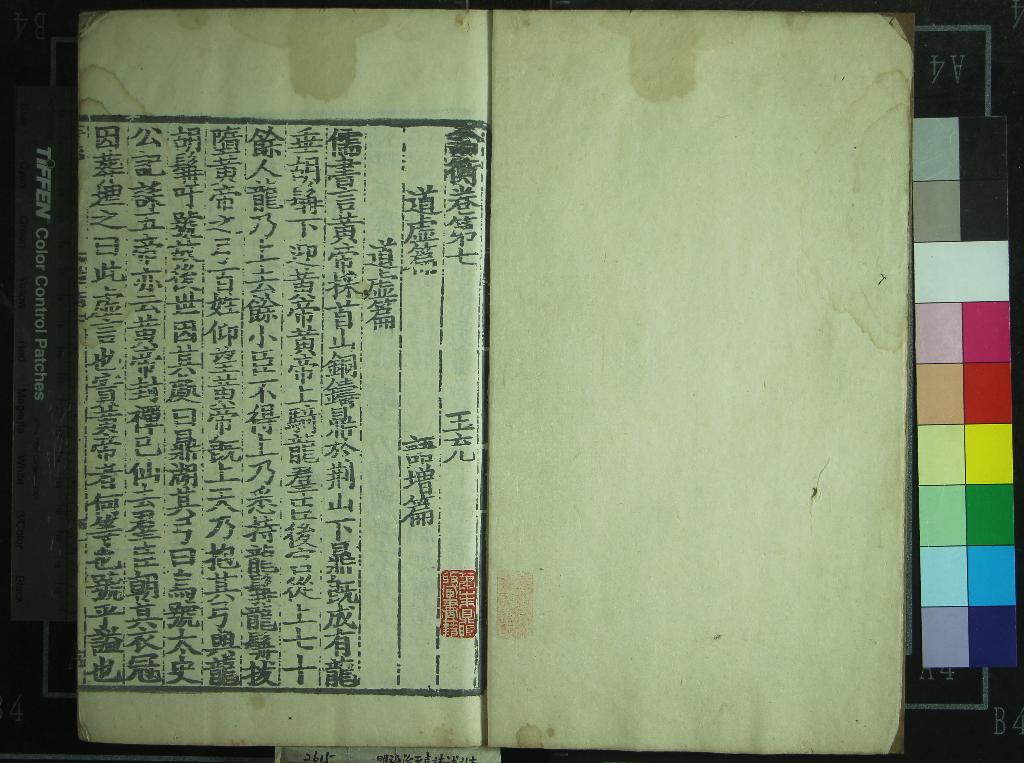 論衡卷第七
王充
道虛篇
語增篇
道虛篇
儒書言黃帝採首山銅鑄鼎於荆山下鼎旣成有龍
垂胡髯下迎黃帝黃帝上騎龍羣臣後宮從上七十
餘人龍乃上去餘小臣不得上乃悉持龍髯龍髯拔
墮黃帝之弓百姓仰望黃帝旣上天乃抱其弓與龍
胡髯吁號故後世因其處曰鼎湖其弓曰烏號太史
公記誄五帝亦云黃帝封禪已仙去羣臣朝其衣冠
因葬埋之曰此虛言也實黃帝者何等也號乎謚也
TIFFEN Color Control Patches
A4
B4
2615